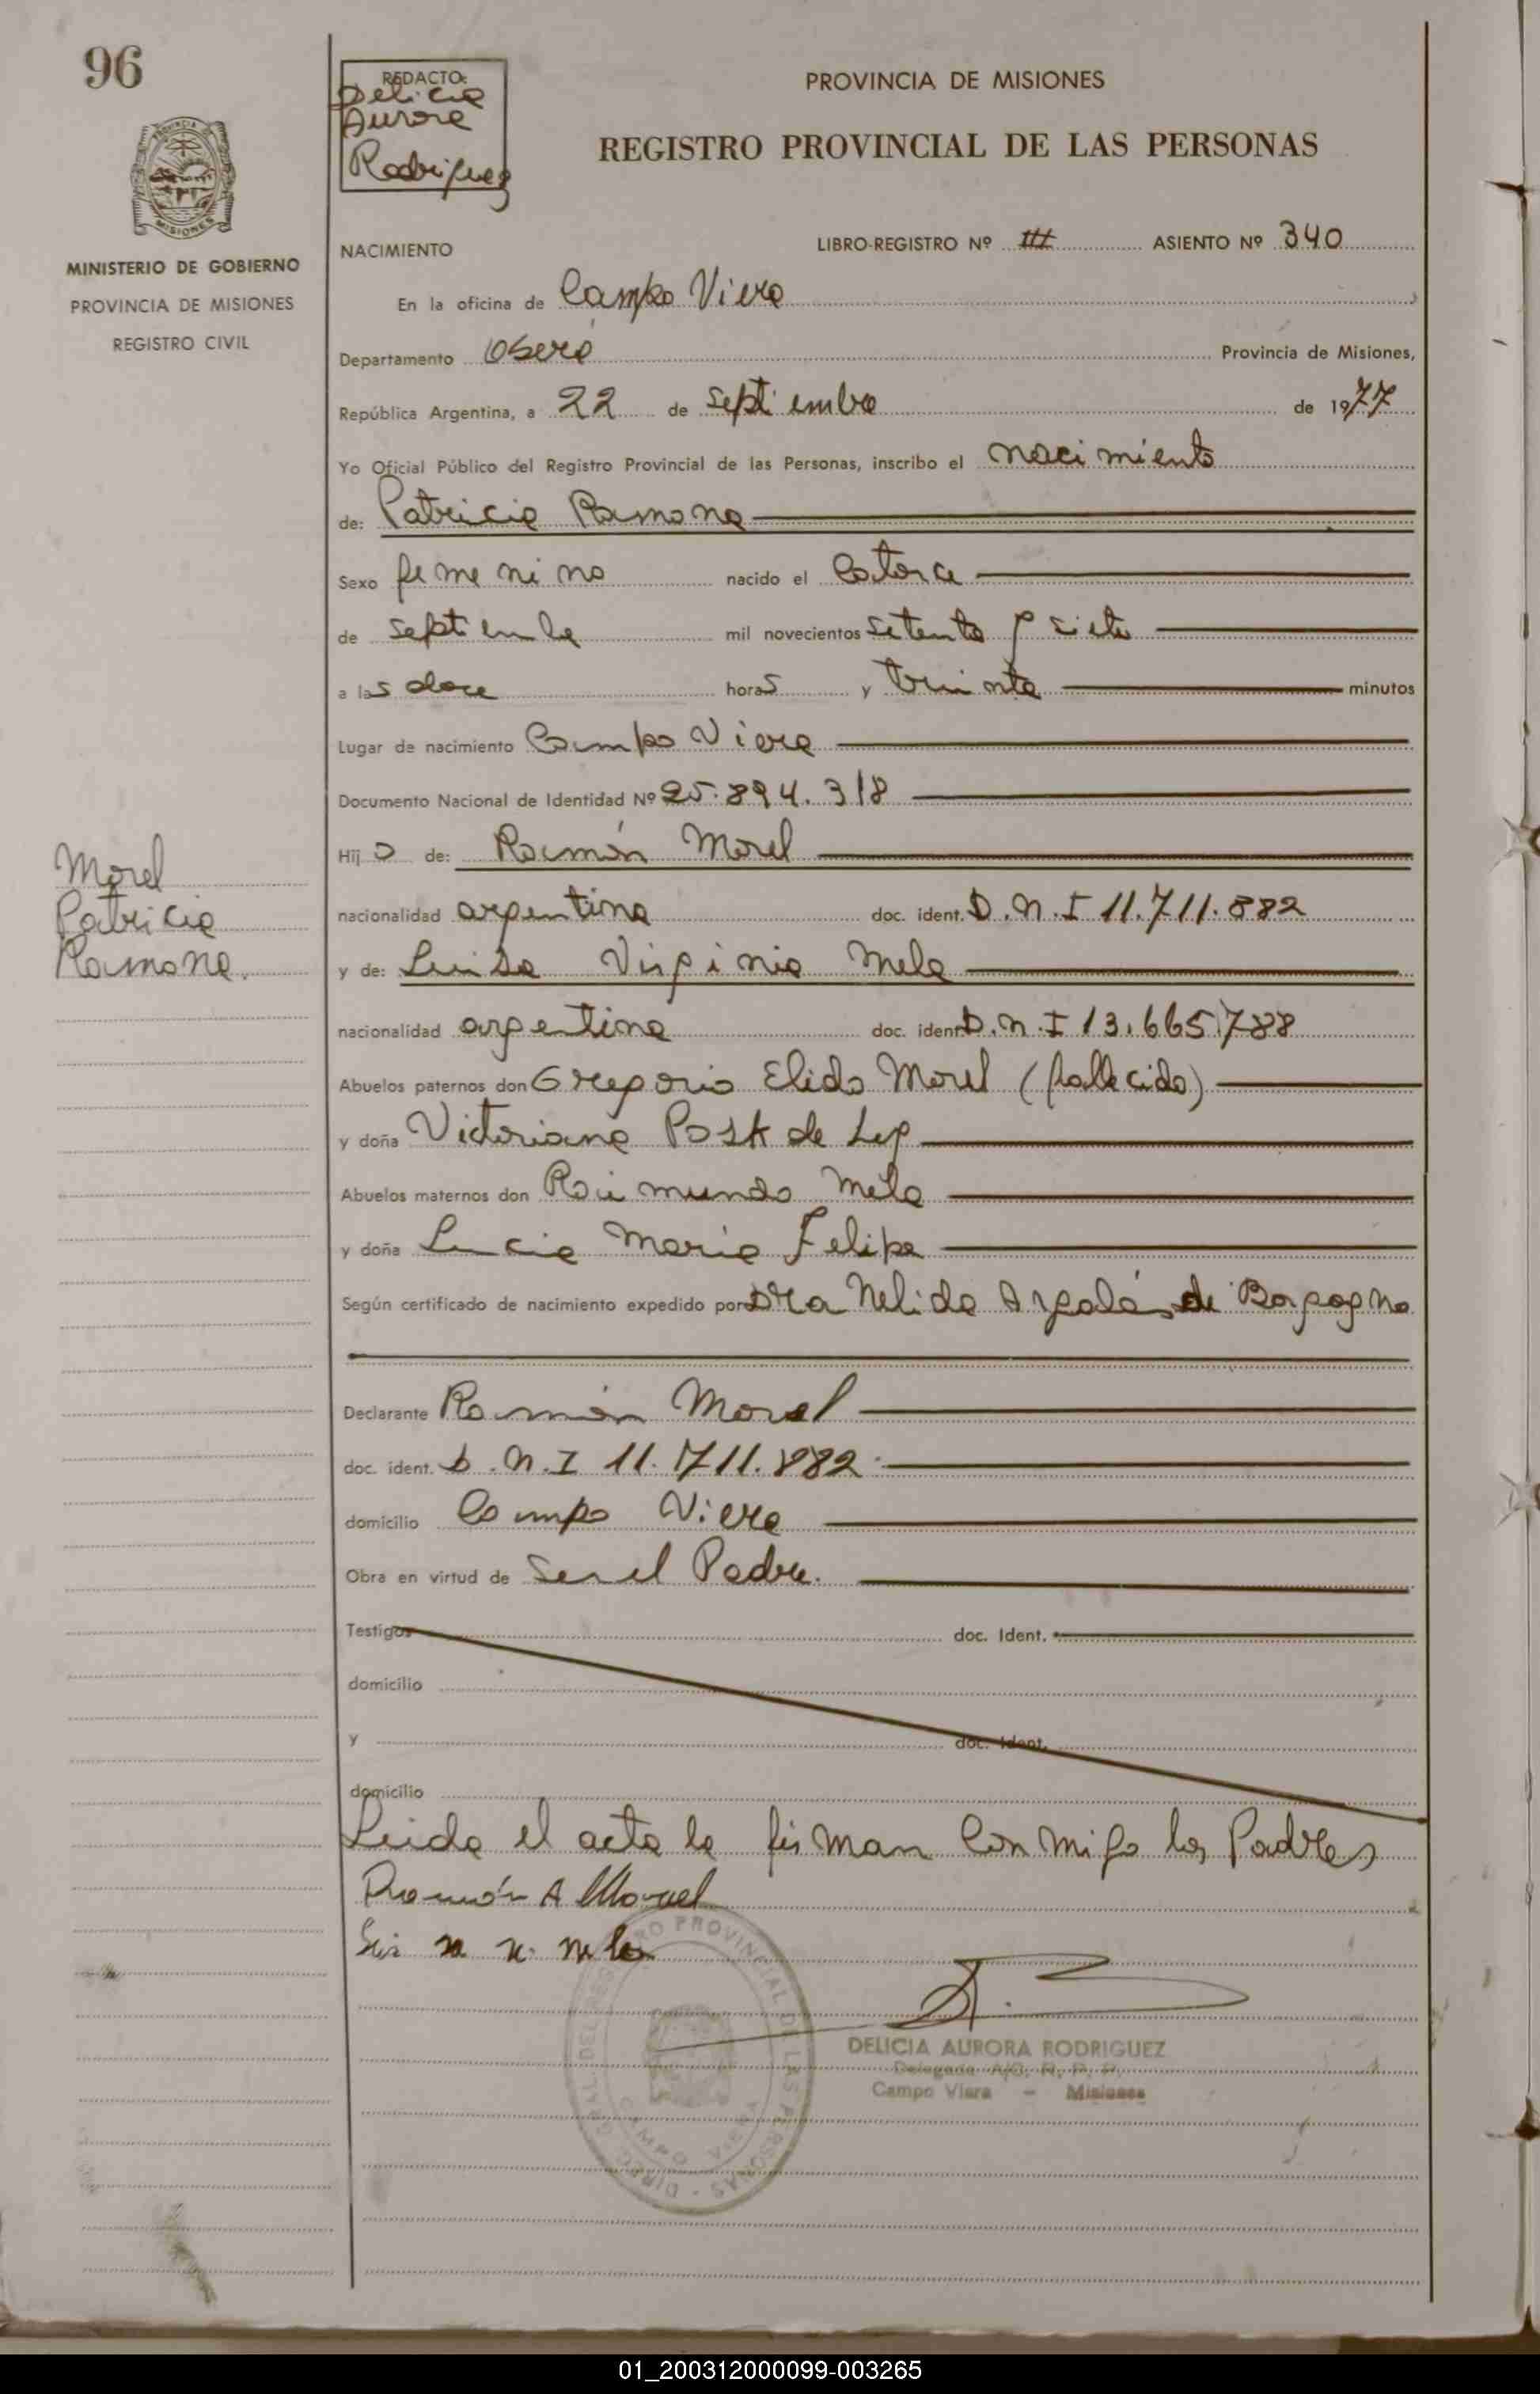 96
REDACTO:
Delicia
Aurora
Rodriguez
PROVINCIA DE MISIONES
REGISTRO PROVINCIAL DE LAS PERSONAS
MISIONES
MINISTERIO DE GOBIERNO
PROVINCIA DE MISIONES
REGISTRO CIVIL
NACIMIENTO LIBRO-REGISTRO Nº III ASIENTO Nº 340
En la oficina de Campo Viera
Departamento Oberá Provincia de Misiones,
República Argentina, a 22 de septiembre de 1977
Yo Oficial Público del Registro Provincial de las Personas, inscribo el nacimiento
de: Patricia Ramona
Sexo femenino nacido el Catorce
de septiembre mil novecientos setenta y siete
a las doce horas y treinta minutos
Lugar de nacimiento Campo Viera
Documento Nacional de Identidad Nº 25.894.318
Hij a de: Ramón Morel
Morel
Patricia
Ramona.
nacionalidad argentina doc. ident. D.N.I 11.711.882
y de: Luisa Virginia Melo
nacionalidad argentina doc. ident D.N.I 13.665.788
Abuelos paternos don Gregorio Elido Morel (fallecido)
y doña Victoriana Post de Ley
Abuelos maternos don Raimundo Melo
y doña Lucia Maria Felipa
Según certificado de nacimiento expedido por Dra Nelida de
Declarante Ramón Morel
doc. ident. D.N.I 11.711.882
domicilio Campo Viera
Obra en virtud de Ser el Padre.
Testigos doc. Ident.
domicilio
y doc. Ident.
domicilio
Leida el acta la firman conmigo los Padres
Ramón A Morel
DIREC. GRAL. DEL REGISTRO PROVINCIAL DE LAS PERSONAS
CAMPO VIERA
DELICIA AURORA RODRIGUEZ
Delegada A/C. R. P. P.
Campo Viera - Misiones
01_200312000099-003265